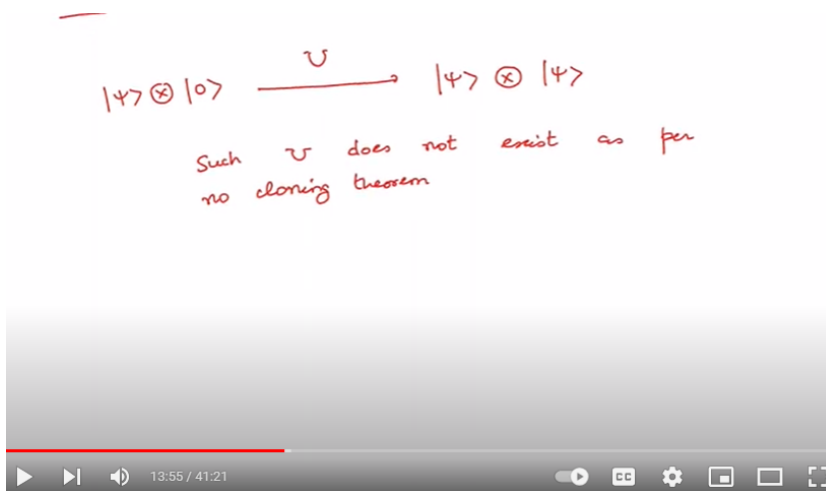 U
|ψ> ⊗ |0> ⟶ |ψ> ⊗ |ψ>
Such U does not exist as per
no cloning theorem
13:55 / 41:21
CC